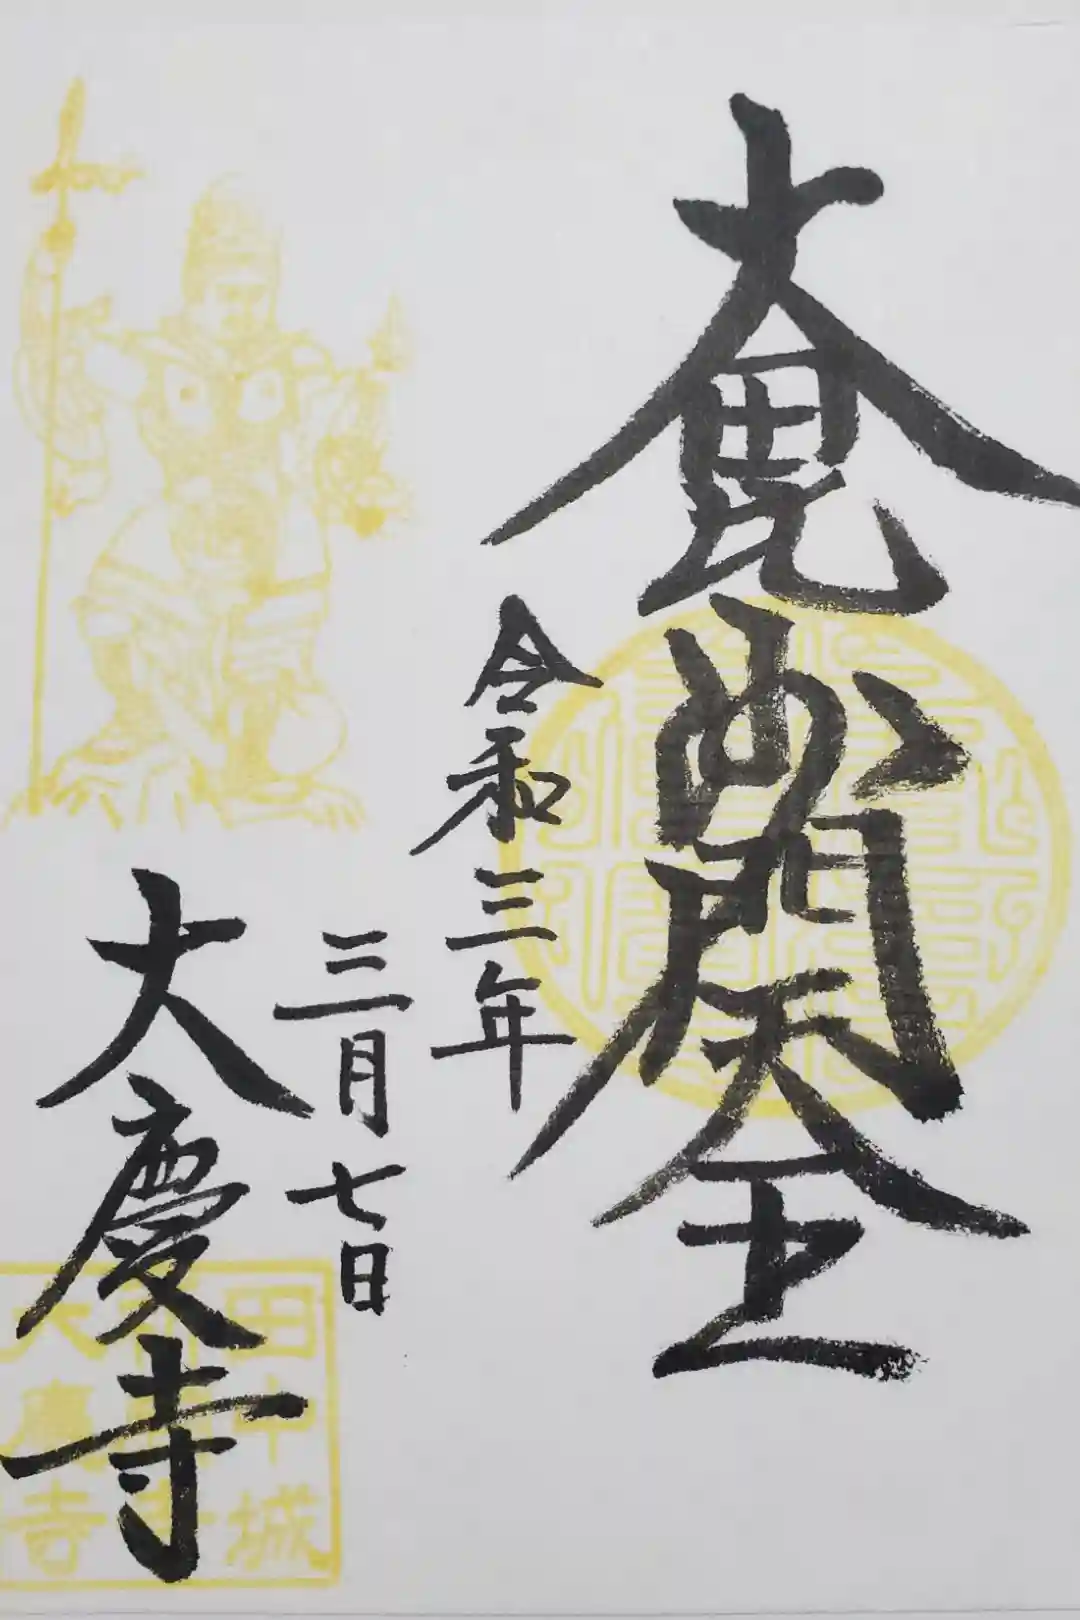 大毘沙門天王
令和三年
三月七日
大慶寺
田中城
大慶寺